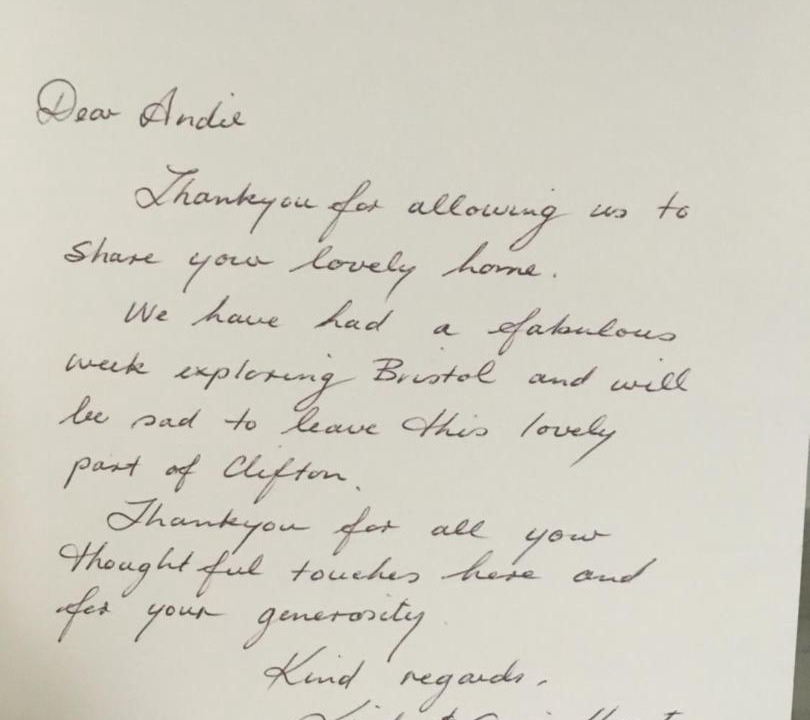 Dear Andie
Thankyou for allowing us to
share your lovely home.
We have had a fabulous
week exploring Bristol and will
be sad to leave this lovely
part of Clifton.
Thankyou for all your
thoughtful touches here and
for your generosity
Kind regards,